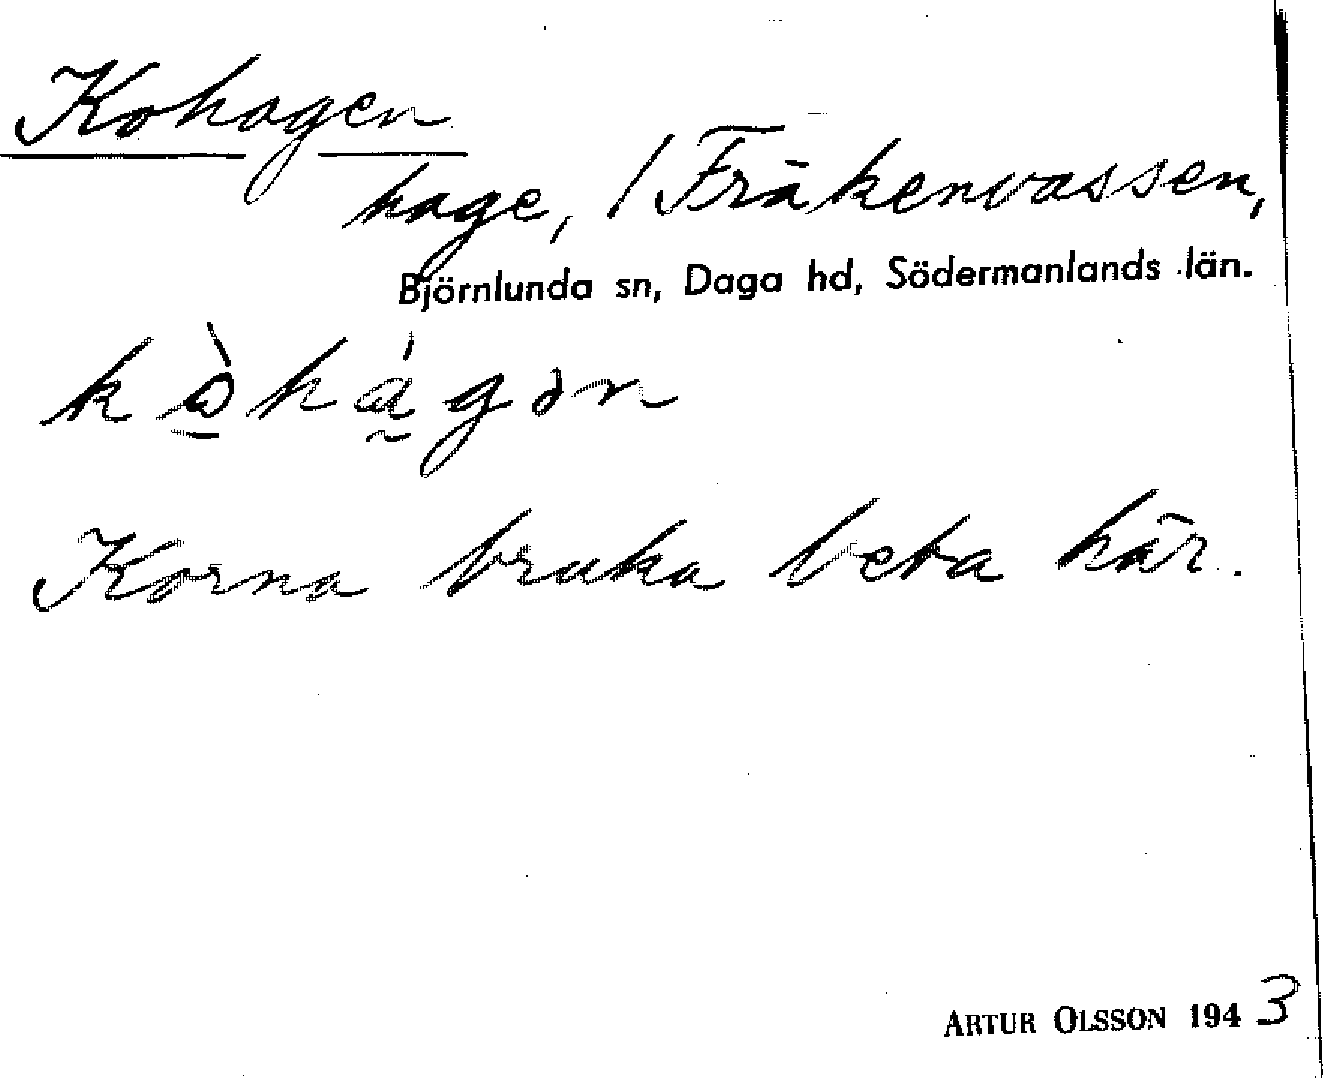 Kohagen
hage, / Fräkenvassen,
Björnlunda sn, Daga hd, Södermanlands län.
kòhágən
Korna bruka beta här.
ARTUR OLSSON 1943